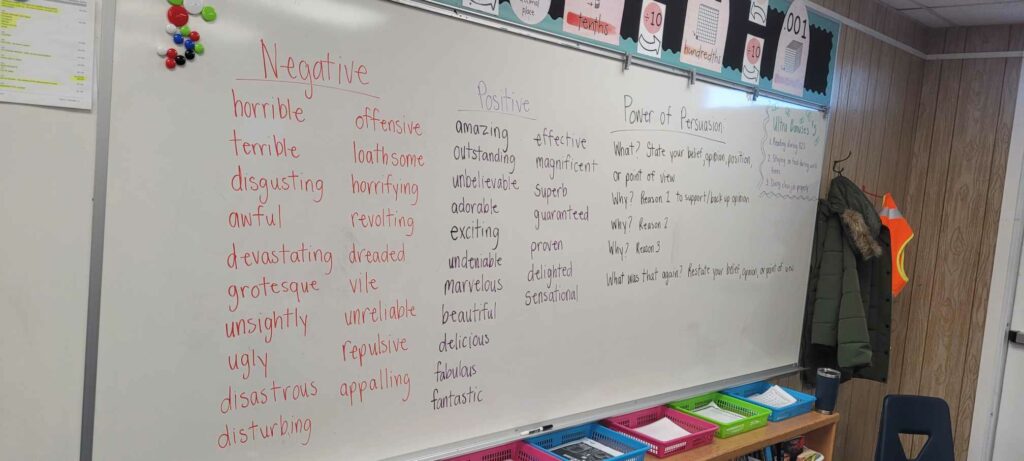 Negative
horrible
terrible
disgusting
awful
devastating
grotesque
unsightly
ugly
disastrous
disturbing
offensive
loathsome
horrifying
revolting
dreaded
vile
unreliable
repulsive
appalling
Positive
amazing
outstanding
unbelievable
adorable
exciting
undeniable
marvelous
beautiful
delicious
fabulous
fantastic
effective
magnificent
superb
guaranteed
proven
delighted
sensational
Power of Persuasion
What? State your belief, opinion, position,
or point of view
Why? Reason 1 to support/back up opinion
Why? Reason 2
Why? Reason 3
What was that again? Restate your belief, opinion, or point of view
place
tenths
÷10
hundredths
÷10
.001
1. Reading during
2. Staying on task during work
3.